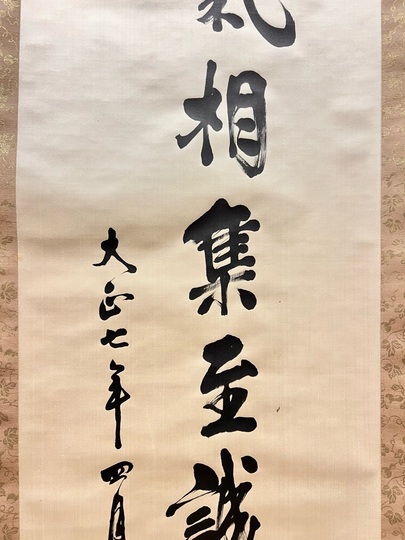 氣相集至誠
大正七年四月